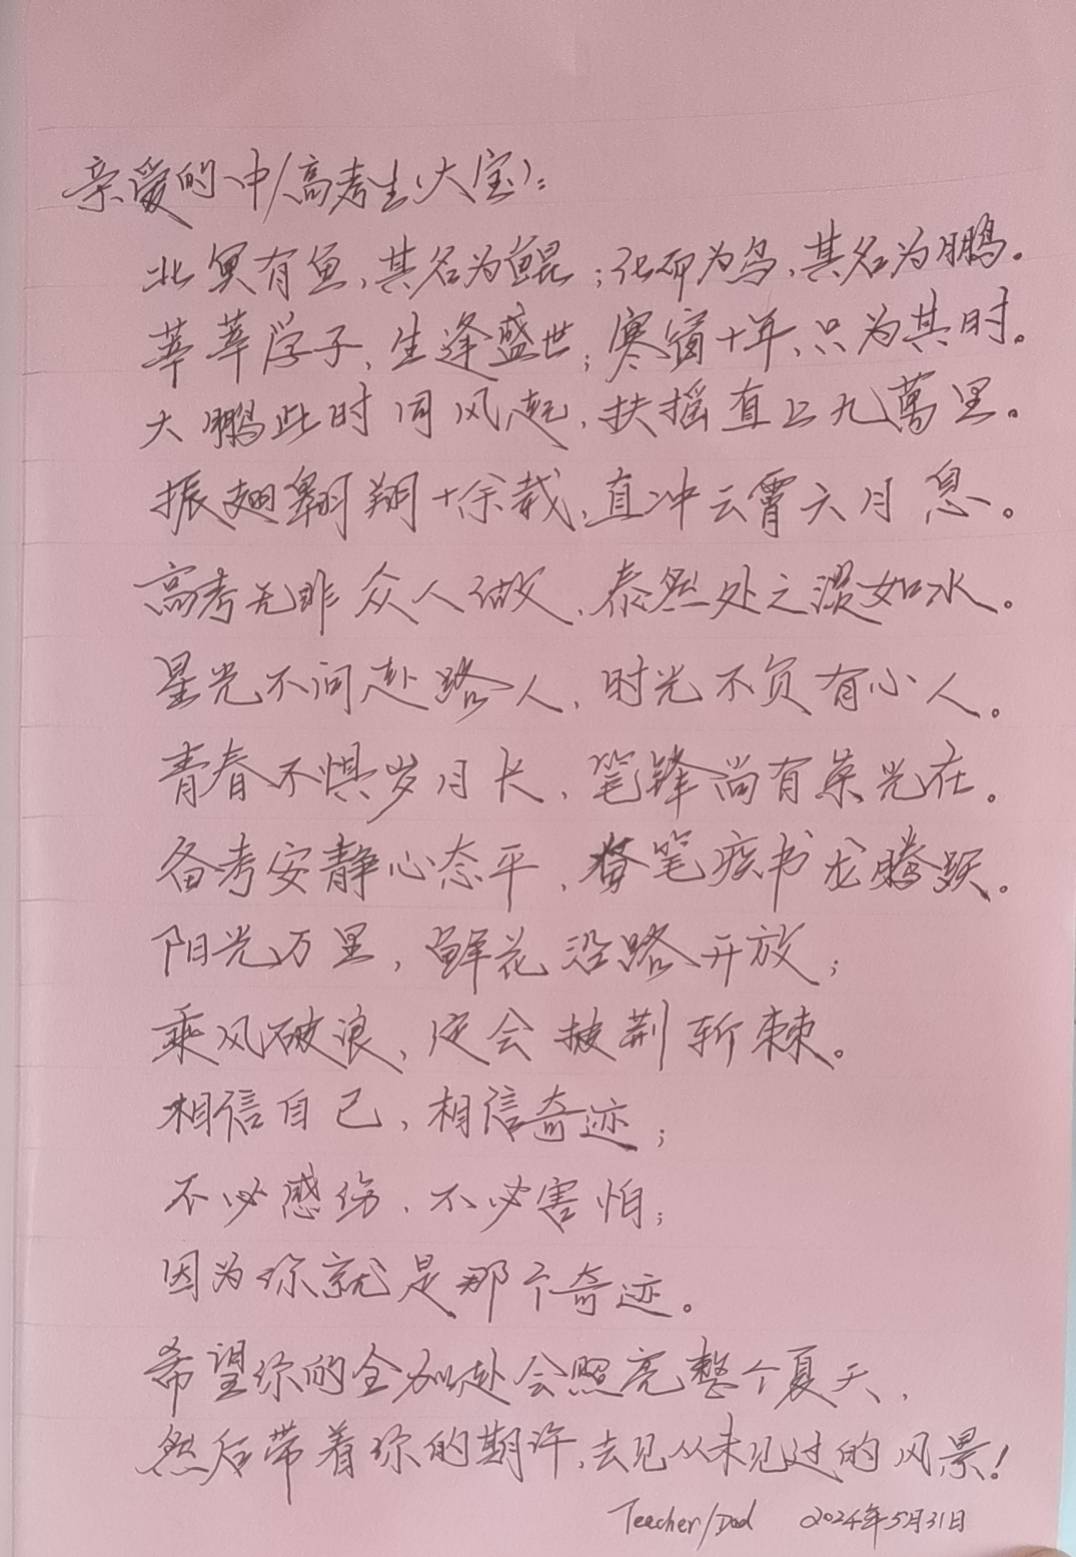 亲爱的中/高考生(大宝):
北冥有鱼,其名为鲲;化而为鸟,其名为鹏。
莘莘学子,生逢盛世;寒窗十年,只为其时。
大鹏此时同风起,扶摇直上九萬里。
振翅翱翔十余载,直冲云霄六月息。
高考无非众人做,泰然处之淡如水。
星光不问赴路人,时光不负有心人。
青春不惧岁月长,笔锋尚有荣光在。
备考安静心态平,奋笔疾书龙腾跃。
阳光万里,鲜花沿路开放;
乘风破浪,定会披荆斩棘。
相信自己,相信奇迹;
不必感伤,不必害怕;
因为你就是那个奇迹。
希望你的全力以赴会照亮整个夏天,
然后带着你的期许,去见从未见过的风景!
Teacher/Dad 2024年5月31日